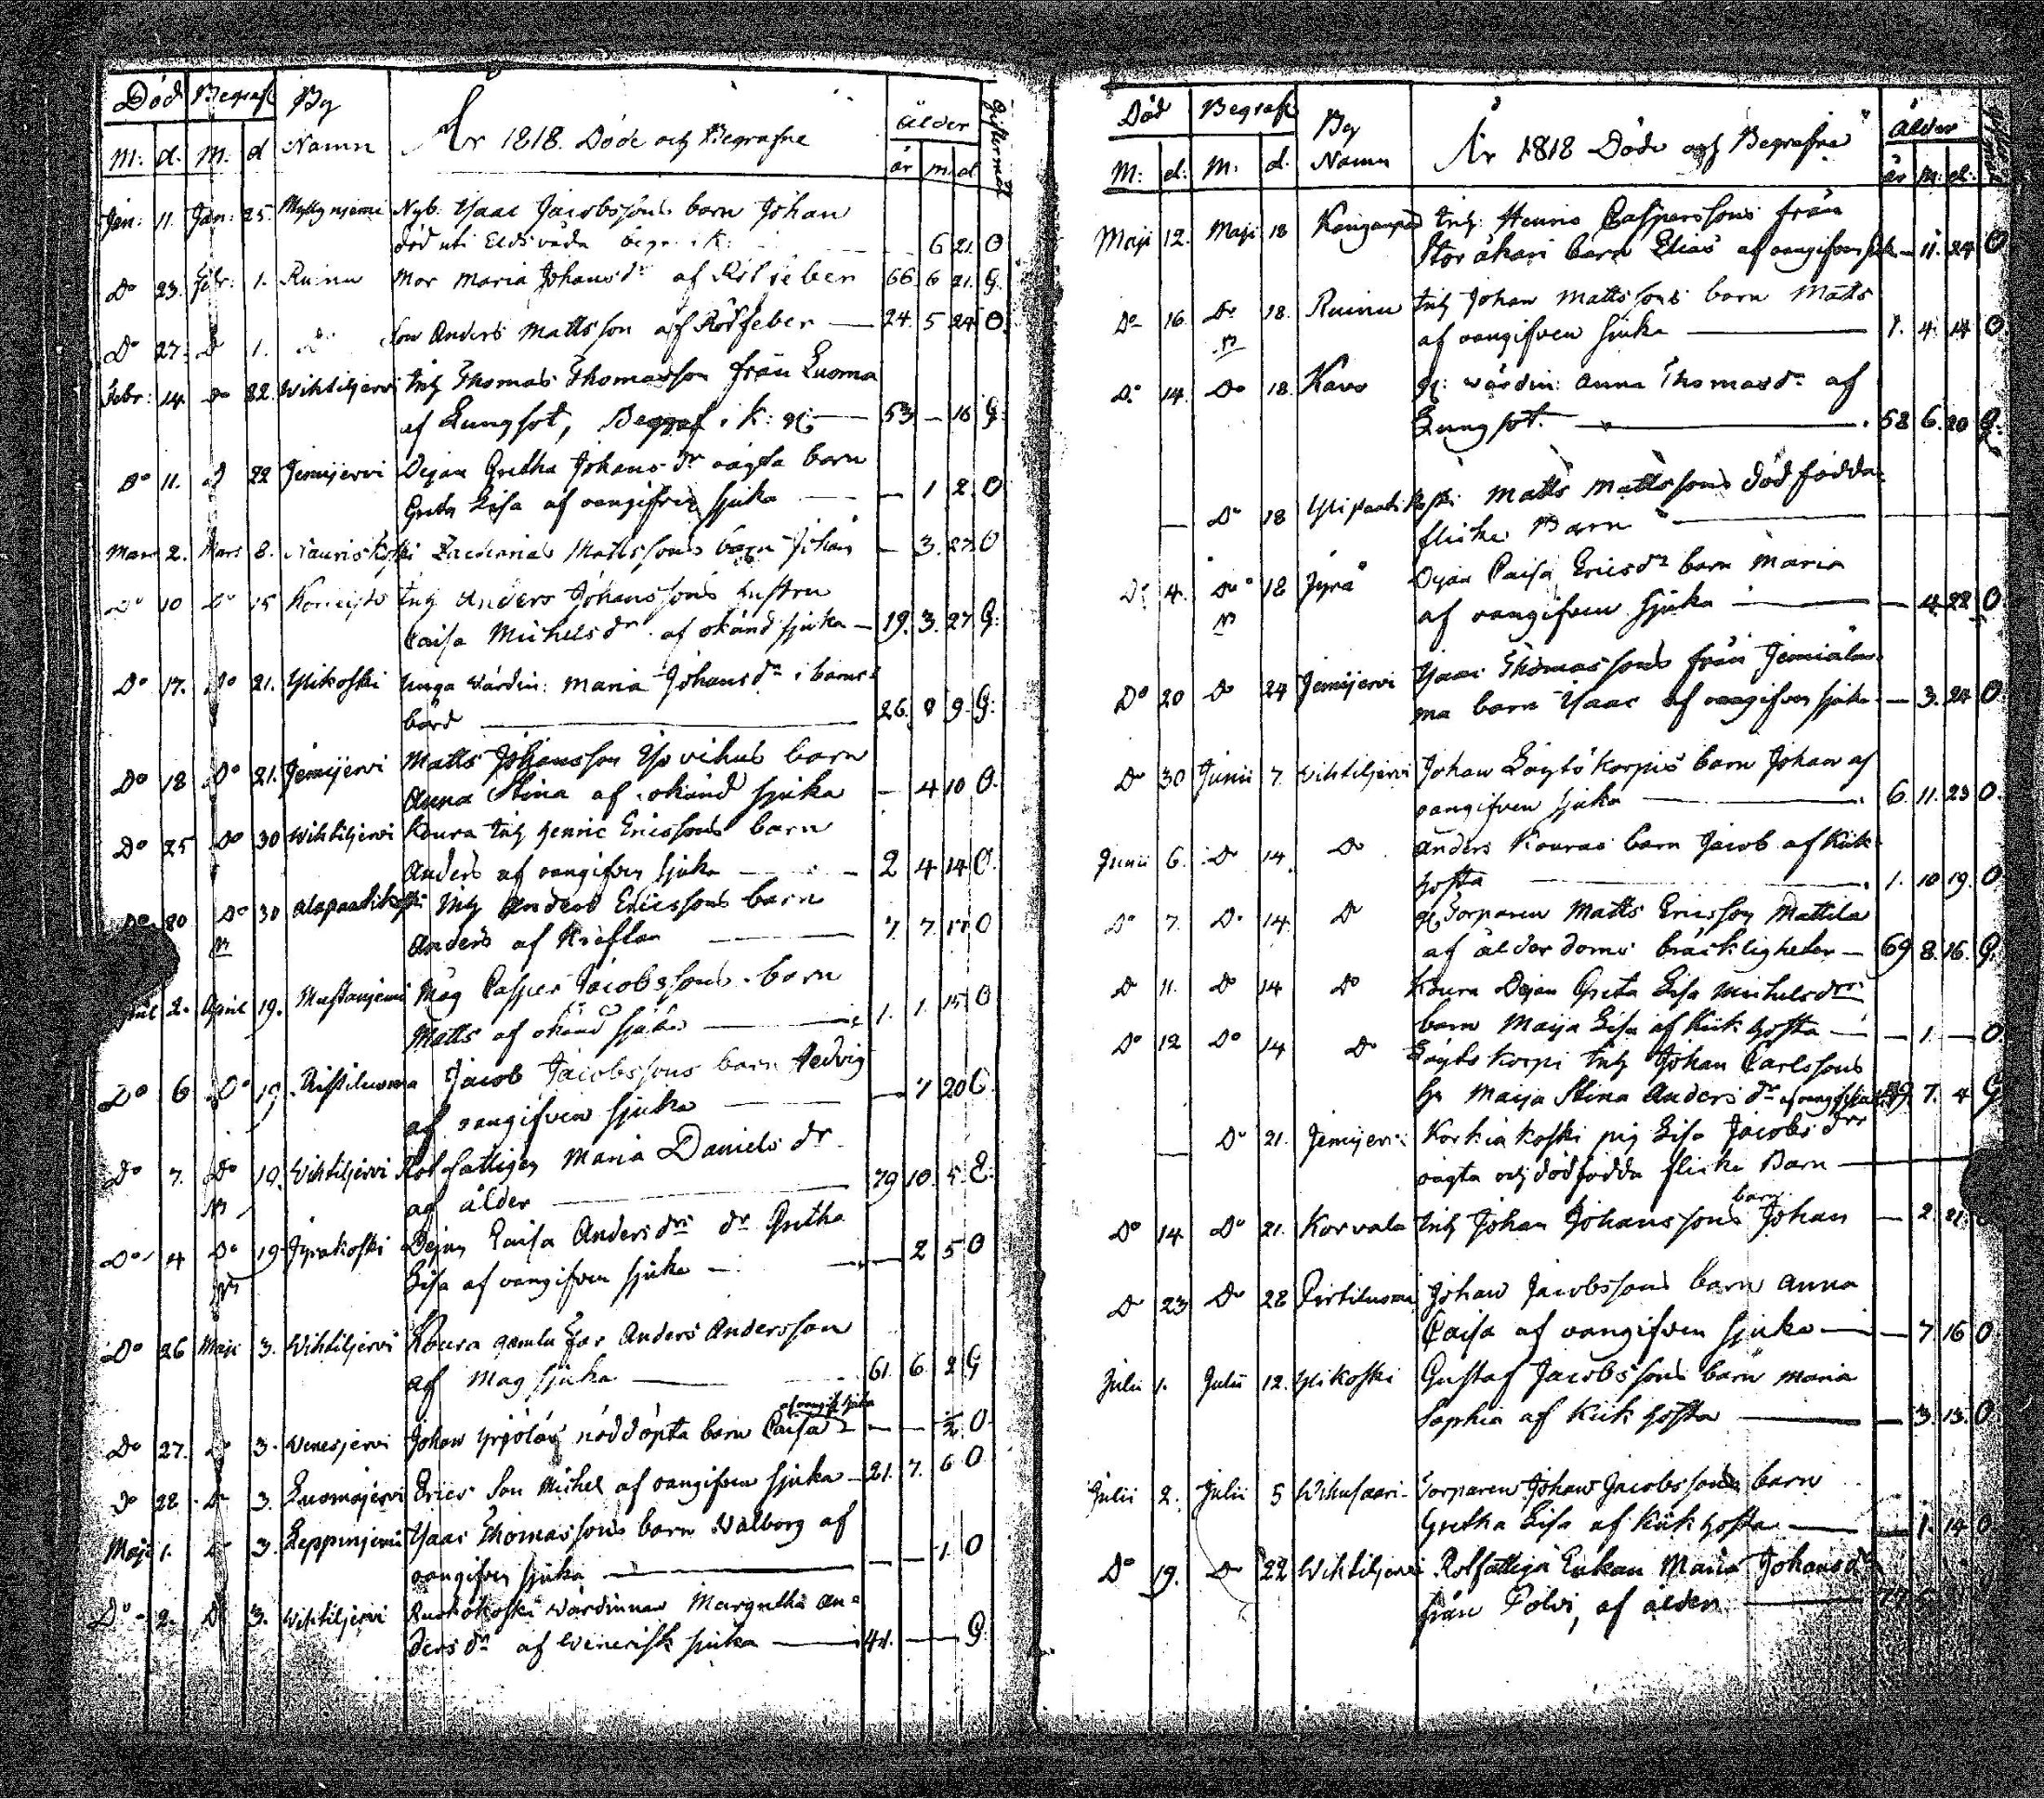 Död Begrafn By År 1818. Döde och Begrafne Ålder Giftermål
M: d. M. d Namn år m d
Jan: 11. Jan: 25 Myllynjemi Nyb. Ysaac Jacobssons barn Johan
död uti Eldsvåda begr. i K: 6 21. O
Do 23. Febr: 1. Ruinu Mor Maria Johansdr af Rötfeber 66 6 21. G.
Do 27. Do 1. Do Son Anders Mattsson af Rötfeber — 24. 5 24 O.
Febr: 14. Do 22. Wihtiljervi Inh Thomas Thomasson från Luoma
af Lungsot, Begraf. i K: — 53 — 16 G.
Do 11. Do 22 Jemijervi Dejan Gretha Johansdr oägta barn
Greta Lisa af oangifven sjuka — — 1 2. O
Mars 2. Mars 8. Nauriskoski Zacharias Mattssons barn Johan — 3. 27. O
Do 10 Do 15 Inh Anders Johanssons hustru
Caisa Michelsdr af okänd sjuka — 19. 3. 27 G.
Do 17. Do 21. Ylikoski Unga Wärdin: Maria Johansdr i barns-
börd — 26. 8 9. G.
Do 18 Do 21. Jemijervi Matts Johansson barn
Anna Stina af okänd sjuka — 4 10 O.
Do 25 Do 30 Wihtiljervi Koura Inh Henric Ericssons barn
Anders af oangifven sjuka — 2 4 14 O.
Do 30 Do 30 Alapaatikoski Inh Anders Ericssons barn
Anders af — 7. 7 O
2. April 19. Mustanjemi Måg Casper Jacobssons barn
Matts af okänd sjuka — 1. 1. 15 O
Do 6 Do 19. Jacob Jacobssons barn Hedvig
af oangifven sjuka — 7 20 O.
Do 7. Do 19. Wihtiljervi Rotfattigen Maria Danielsdr
af ålder — 79 10. 5. E.
Do 4 Do 19 Jyrakoski Dejan Caisa Andersdrs dr Gretha
Lisa af oangifven sjuka — — 2 5 O
Do 26 Maji 3. Wihtiljervi Koura gamla Far Anders Andersson
af Mag sjuka — 61. 6. 2 G
af oangif. sjuka
Do 27. Do 3. Wenesjervi Johan Yrjöläs nöddöpta barn Caisa — — ½ O
Do 28 Do 3. Luomajervi Erics Son Michel af oangifven sjuka — 21. 7. 6 O
Maji 1. Do 3. Leppenjemi Ysaac Thomassons barn Walborg af
oangifven sjuka — — — 1. O
Do 2. Do 3. Wihtiljervi Ruokokoski Wärdinnan Margretha An-
dersdr af Wenerisk sjuka — 44. — — G.
Död Begrafn By År 1818 Döde och Begrafne Ålder
M: d: M. d. Namn år m: d.
Maji 12. Maji 18 Inh: Henric Casperssons från
barn Elias af oangifven sjuk — 11. 24 O
Do 16. Do 18. Ruinu Inh Johan Mattssons barn Matts
af oangifven sjuka — 1. 4. 14 O.
Do 14. Do 18. Kävo Gl: Wärdin: Anna Thomasdr af
Lungsot. — 58 6. 20 G.
— Do 18 Ylipaatikoski Matts Mattssons dödfödda
flicke Barn —
Do 4. Do 18 Jyrä Dejan Caisa Ericsdr barn Maria
af oangifven sjuka — — 4 22 O.
Do 20 Do 24 Jemijervi Ysaac Thomassons från Jemiälam-
ma barn Ysaac af oangifven sjuka — — 3. 24 O.
Do 30 Junii 7. Wihtiljervi Johan Löytökorpis barn Johan af
oangifven sjuka — 6. 11. 23 O.
Junii 6. Do 14. Do Anders Kouras barn Jacob af Kik-
hosta — 1. 10 19. O
Do 7. Do 14. Do Gl. Torparen Matts Ericsson Mattila
af ålderdoms bräckligheter — 69 8. 16. G.
Do 11. Do 14 Do Koura Dejan Greta Lisa Michelsdrs
barn Maija Lisa af Kikhosta — — 1. — O.
Do 12 Do 14 Do Löytökorpi Inh Johan Carlssons
hu Maija Stina Andersdr af oangif sjuka 7. 4 G
— Do 21. Jemijervi Korkiakoski pig Lisa Jacobsdrs
oägta och dödfödda flicke Barn —
barn
Do 14. Do 21. Korvala Inh Johan Johanssons Johan — 2. 21.
Do 23 Do 28 Pirtiluoma Johan Jacobssons barn Anna
Caisa af oangifven sjuka — — 7. 16 O
Julii 1. Julii 12. Ylikoski Gustaf Jacobssons barn Maria
Sophia af Kikhosta — — 3. 13. O
Julii 2. Julii 5 Wihusaari Torparen Johan Jacobssons barn
Gretha Lisa af Kikhosta — — 1. 14 O
Do 19. Do 22 Wihtiljervi Rotfattiga Enkan Maria Johansdr
från Polvi, af ålder —